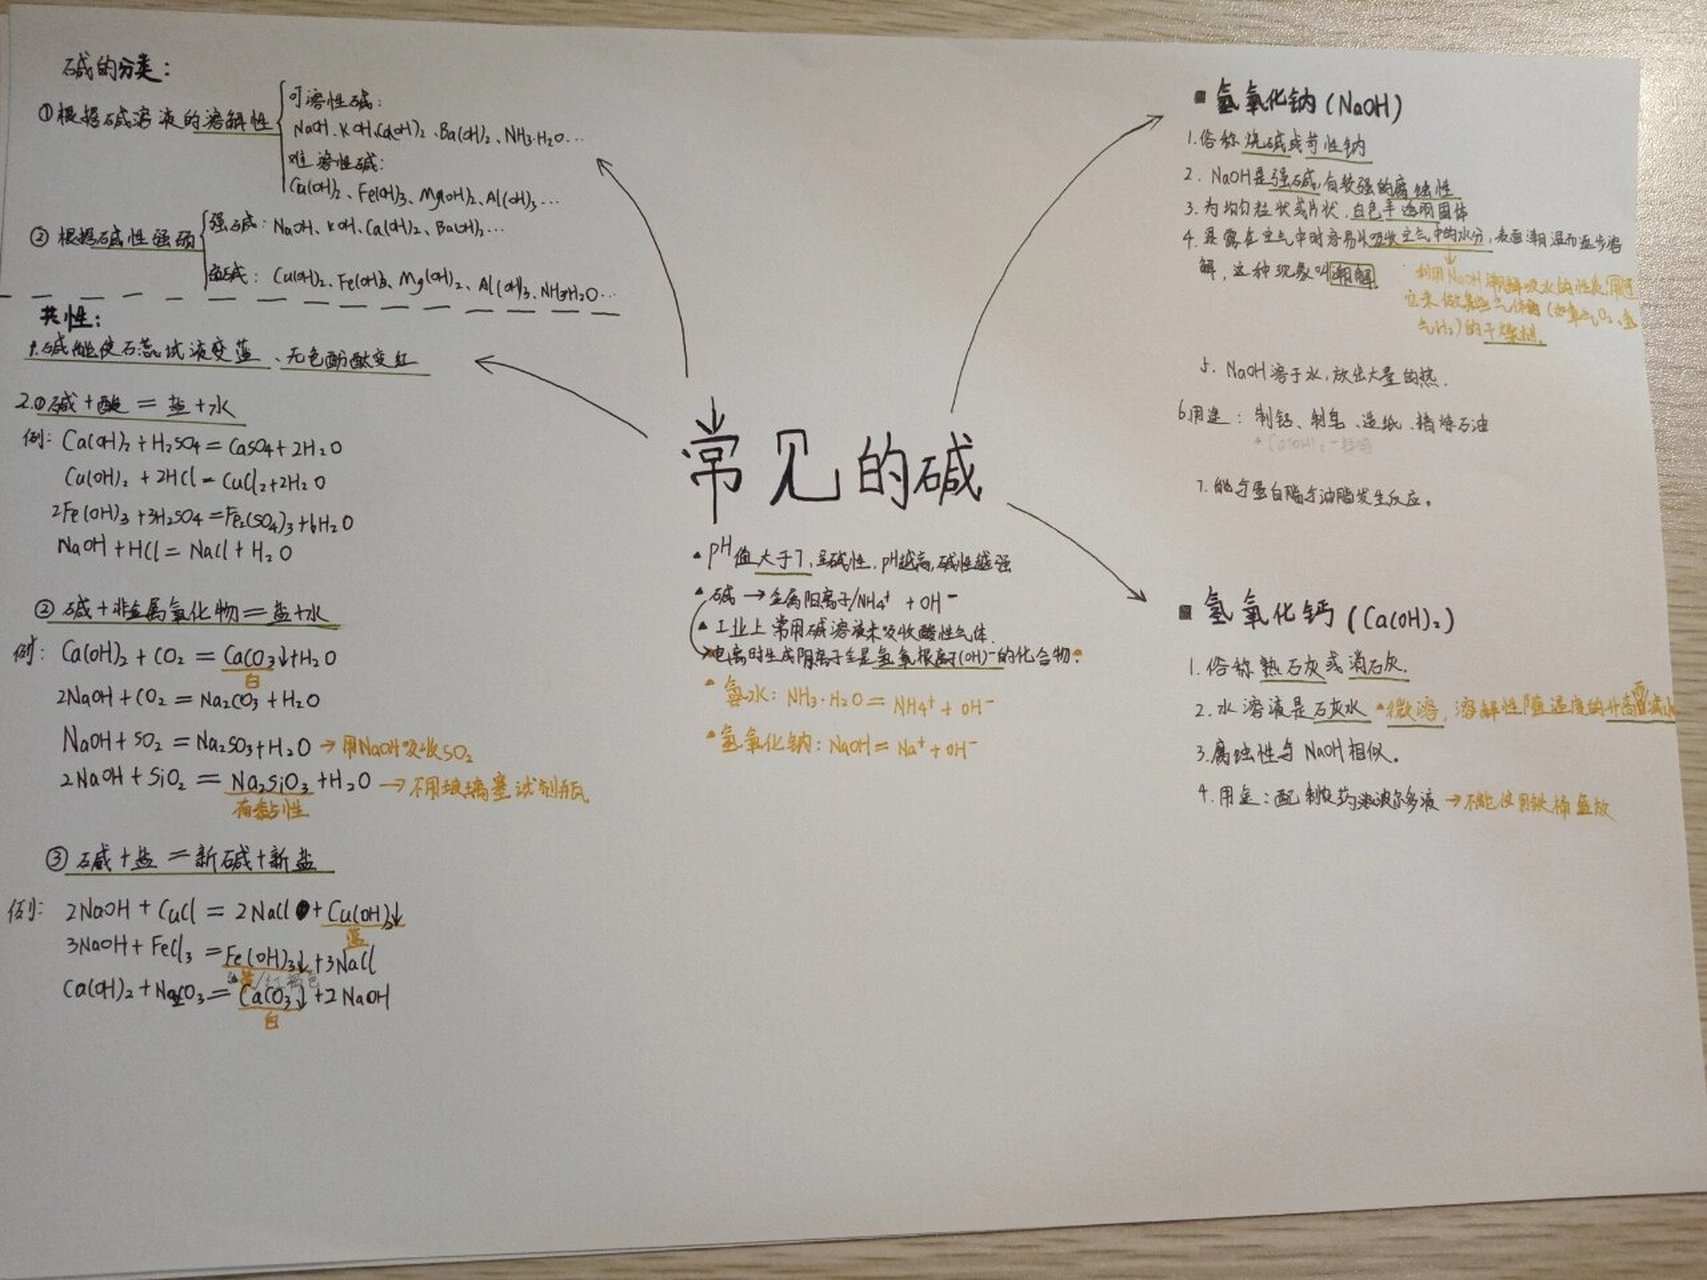 碱的分类：
①根据碱溶液的溶解性
可溶性碱：
NaOH、KOH、Ca(OH)₂、Ba(OH)₂、NH₃·H₂O…
难溶性碱：
Cu(OH)₂、Fe(OH)₃、Mg(OH)₂、Al(OH)₃…
②根据碱性强弱
强碱：NaOH、KOH、Ca(OH)₂、Ba(OH)₂…
弱碱：Cu(OH)₂、Fe(OH)₃、Mg(OH)₂、Al(OH)₃、NH₃H₂O…
共性：
1.碱能使石蕊试液变蓝、无色酚酞变红
2.①碱+酸=盐+水
例：Ca(OH)₂+H₂SO₄=CaSO₄+2H₂O
Cu(OH)₂+2HCl=CuCl₂+2H₂O
2Fe(OH)₃+3H₂SO₄=Fe₂(SO₄)₃+6H₂O
NaOH+HCl=NaCl+H₂O
②碱+非金属氧化物=盐+水
例：Ca(OH)₂+CO₂=CaCO₃↓+H₂O
白
2NaOH+CO₂=Na₂CO₃+H₂O
NaOH+SO₂=Na₂SO₃+H₂O→用NaOH吸收SO₂
2NaOH+SiO₂=Na₂SiO₃+H₂O→不用玻璃塞试剂瓶
有黏性
③碱+盐=新碱+新盐
例：2NaOH+CuCl=2NaCl+Cu(OH)₂↓
蓝
3NaOH+FeCl₃=Fe(OH)₃↓+3NaCl
Ca(OH)₂+Na₂CO₃=CaCO₃↓+2NaOH
白
常见的碱
pH值大于7，呈碱性，pH越高，碱性越强
碱→金属阳离子/NH₄⁺+OH⁻
工业上常用碱溶液来吸收酸性气体.
电离时生成阴离子全是氢氧根离子(OH)⁻的化合物.
氨水：NH₃·H₂O=NH₄⁺+OH⁻
氢氧化钠：NaOH=Na⁺+OH⁻
■ 氢氧化钠(NaOH)
1.俗称烧碱或苛性钠
2.NaOH是强碱,有较强的腐蚀性
3.为均匀粒状或片状，白色半透明固体
4.暴露在空气中时容易从吸收空气中的水分，表面潮湿而逐步溶
解，这种现象叫潮解.
利用NaOH潮解吸水的性质,用
来做某些气体的(如氧气O₂、氢
气H₂)的干燥剂.
5.NaOH溶于水,放出大量的热.
6用途：制铝、制皂、造纸、精炼石油
7.能与蛋白脂与油脂发生反应。
■ 氢氧化钙(Ca(OH)₂)
1.俗称熟石灰或消石灰.
2.水溶液是石灰水 微溶，溶解性随温度的升高而减小
3.腐蚀性与NaOH相似.
4.用途：配制农药波尔多液→不能使用铁桶盛放